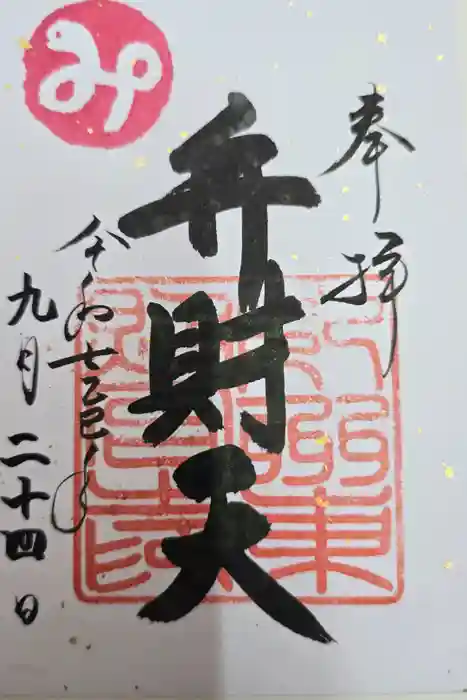 奉拝
弁財天
令和七乙巳年
九月二十四日
み